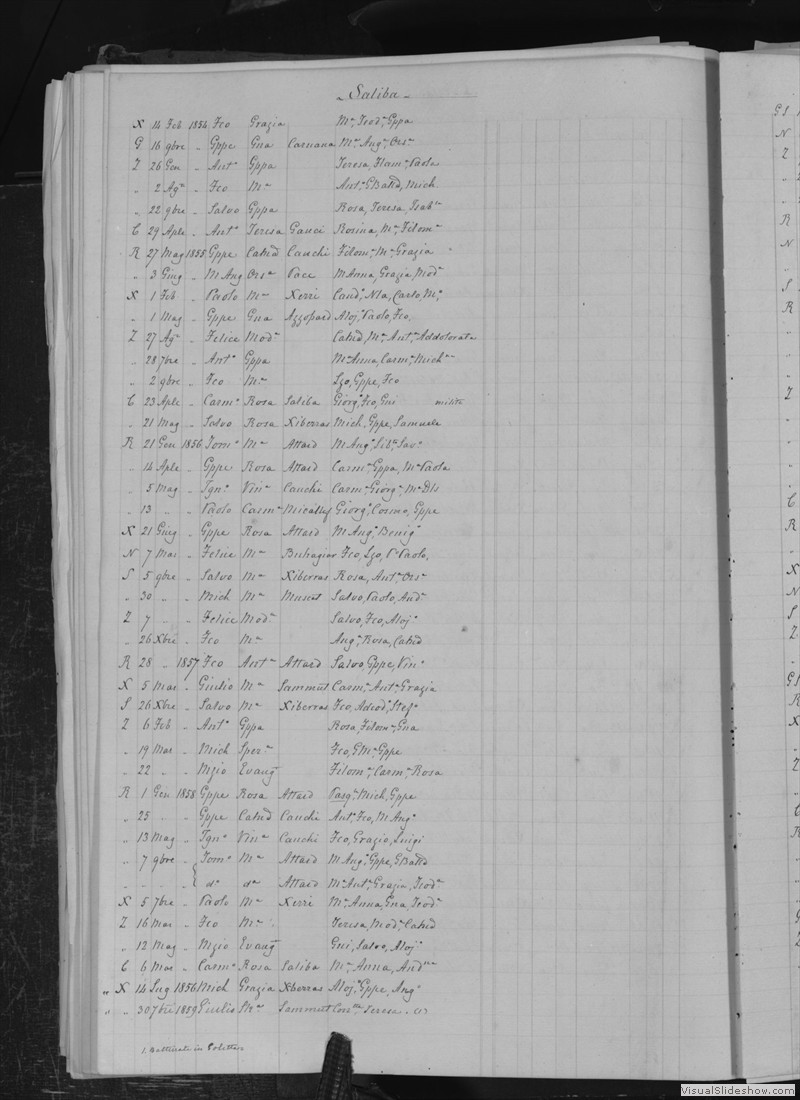 Saliba
X 14 Feb 1854 Fco Grazia Ma, Teoda, Gppa
G 16 9bre " Gppe Gna Caruana Ma Anga, Orsa
Z 26 Gen " Anto Gppa Teresa, Flama, Paola
" 2 Ago " Fco Ma Anto, GBatta, Mich
" 22 9bre " Salvo Gppa Rosa, Teresa, Isabla
C 29 Aple " Anto Teresa Gauci Rosina, Ma, Filoma
R 27 Mag 1855 Gppe Catna Cauchi Filoma, Ma, Grazia
" 3 Giug " M Ang Orsa Pace MAnna, Grazia, Moda
X 1 Feb " Paolo Ma Xerri Canda, Nla, Carlo, Ma
" 1 Mag " Gppe Gna Azzopard Aloja, Paolo, Fco,
Z 27 Ago " Felice Moda Catna, Ma, Anta, Addolorata
" 28 7bre " Anto Gppa Ma Anna, Carma, Micha
" 2 9bre " Fco Ma Lzo, Gppe, Fco
C 23 Aple " Carmo Rosa Saliba Giorgo, Fco, Gni
" 21 Mag " Salvo Rosa Xiberras Mich, Gppe, Samuele
R 21 Gen 1856 Tomo Ma Attard M Anga, Liba, Sava
" 14 Aple " Gppe Rosa Attard Carma, Gppa, Ma Paola
" 5 Mag " Igno Vina Cauchi Carma, Giorga, Ma Dls
" 13 " " Paolo Carma Micallef Giorgo, Cosmo, Gppe
X 21 Giug " Gppe Rosa Attard M Anga, Beniga
N 7 Mar " Felice Ma Buhagiar Fco, Lzo, P Paolo,
S 5 9bre " Salvo Ma Xiberras Rosa, Anta, Orsa
" 30 " " Mich Ma Salvo, Paolo, Anda
Z 7 " " Felice Moda Salvo, Fco, Alojo
" 26 Xbre " Fco Ma Anga, Rosa, Catna
R 28 " 1857 Fco Anta Attard Salvo, Gppe, Vino
X 5 Mar " Giulio Ma Sammut Carma, Anta, Grazia
S 26 Xbre " Salvo Ma Xiberras Fco, Adeod, Stefo
Z 6 Feb " Anto Gppa Rosa, Filoma, Gna
" 19 Mar " Mich Spera Fco, GMa, Gppe
" 22 " " Nzio Evang Filoma, Carma, Rosa
R 1 Gen 1858 Gppe Rosa Attard Pasqe, Mich, Gppe
" 25 " " Gppe Catna Cauchi Anto, Fco, M Ango
" 13 Mag " Igno Vina Cauchi Fco, Grazio, Luigi
" 7 9bre " Tomo Ma Attard M Ango, Gppe, GBatta
" " " " do da Attard Ma Anta, Grazia, Teoda
X 5 7bre " Paolo Ma Xerri Ma Anna, Gna, Teoda
Z 16 Mar " Fco Ma Teresa, Moda, Catna
" 12 Mag " Nzio Evang Gni, Salvo, Alojo
C 6 Mar " Carmo Rosa Saliba Ma Anna, Anda
" X 14 Lug 1856 Mich Grazia Xberras Alojo, Gppe, Ango
" " 30 7bre 1859 Giulio Ma Sammut Teresa. (1)
1. in
VisualSlideshow.com